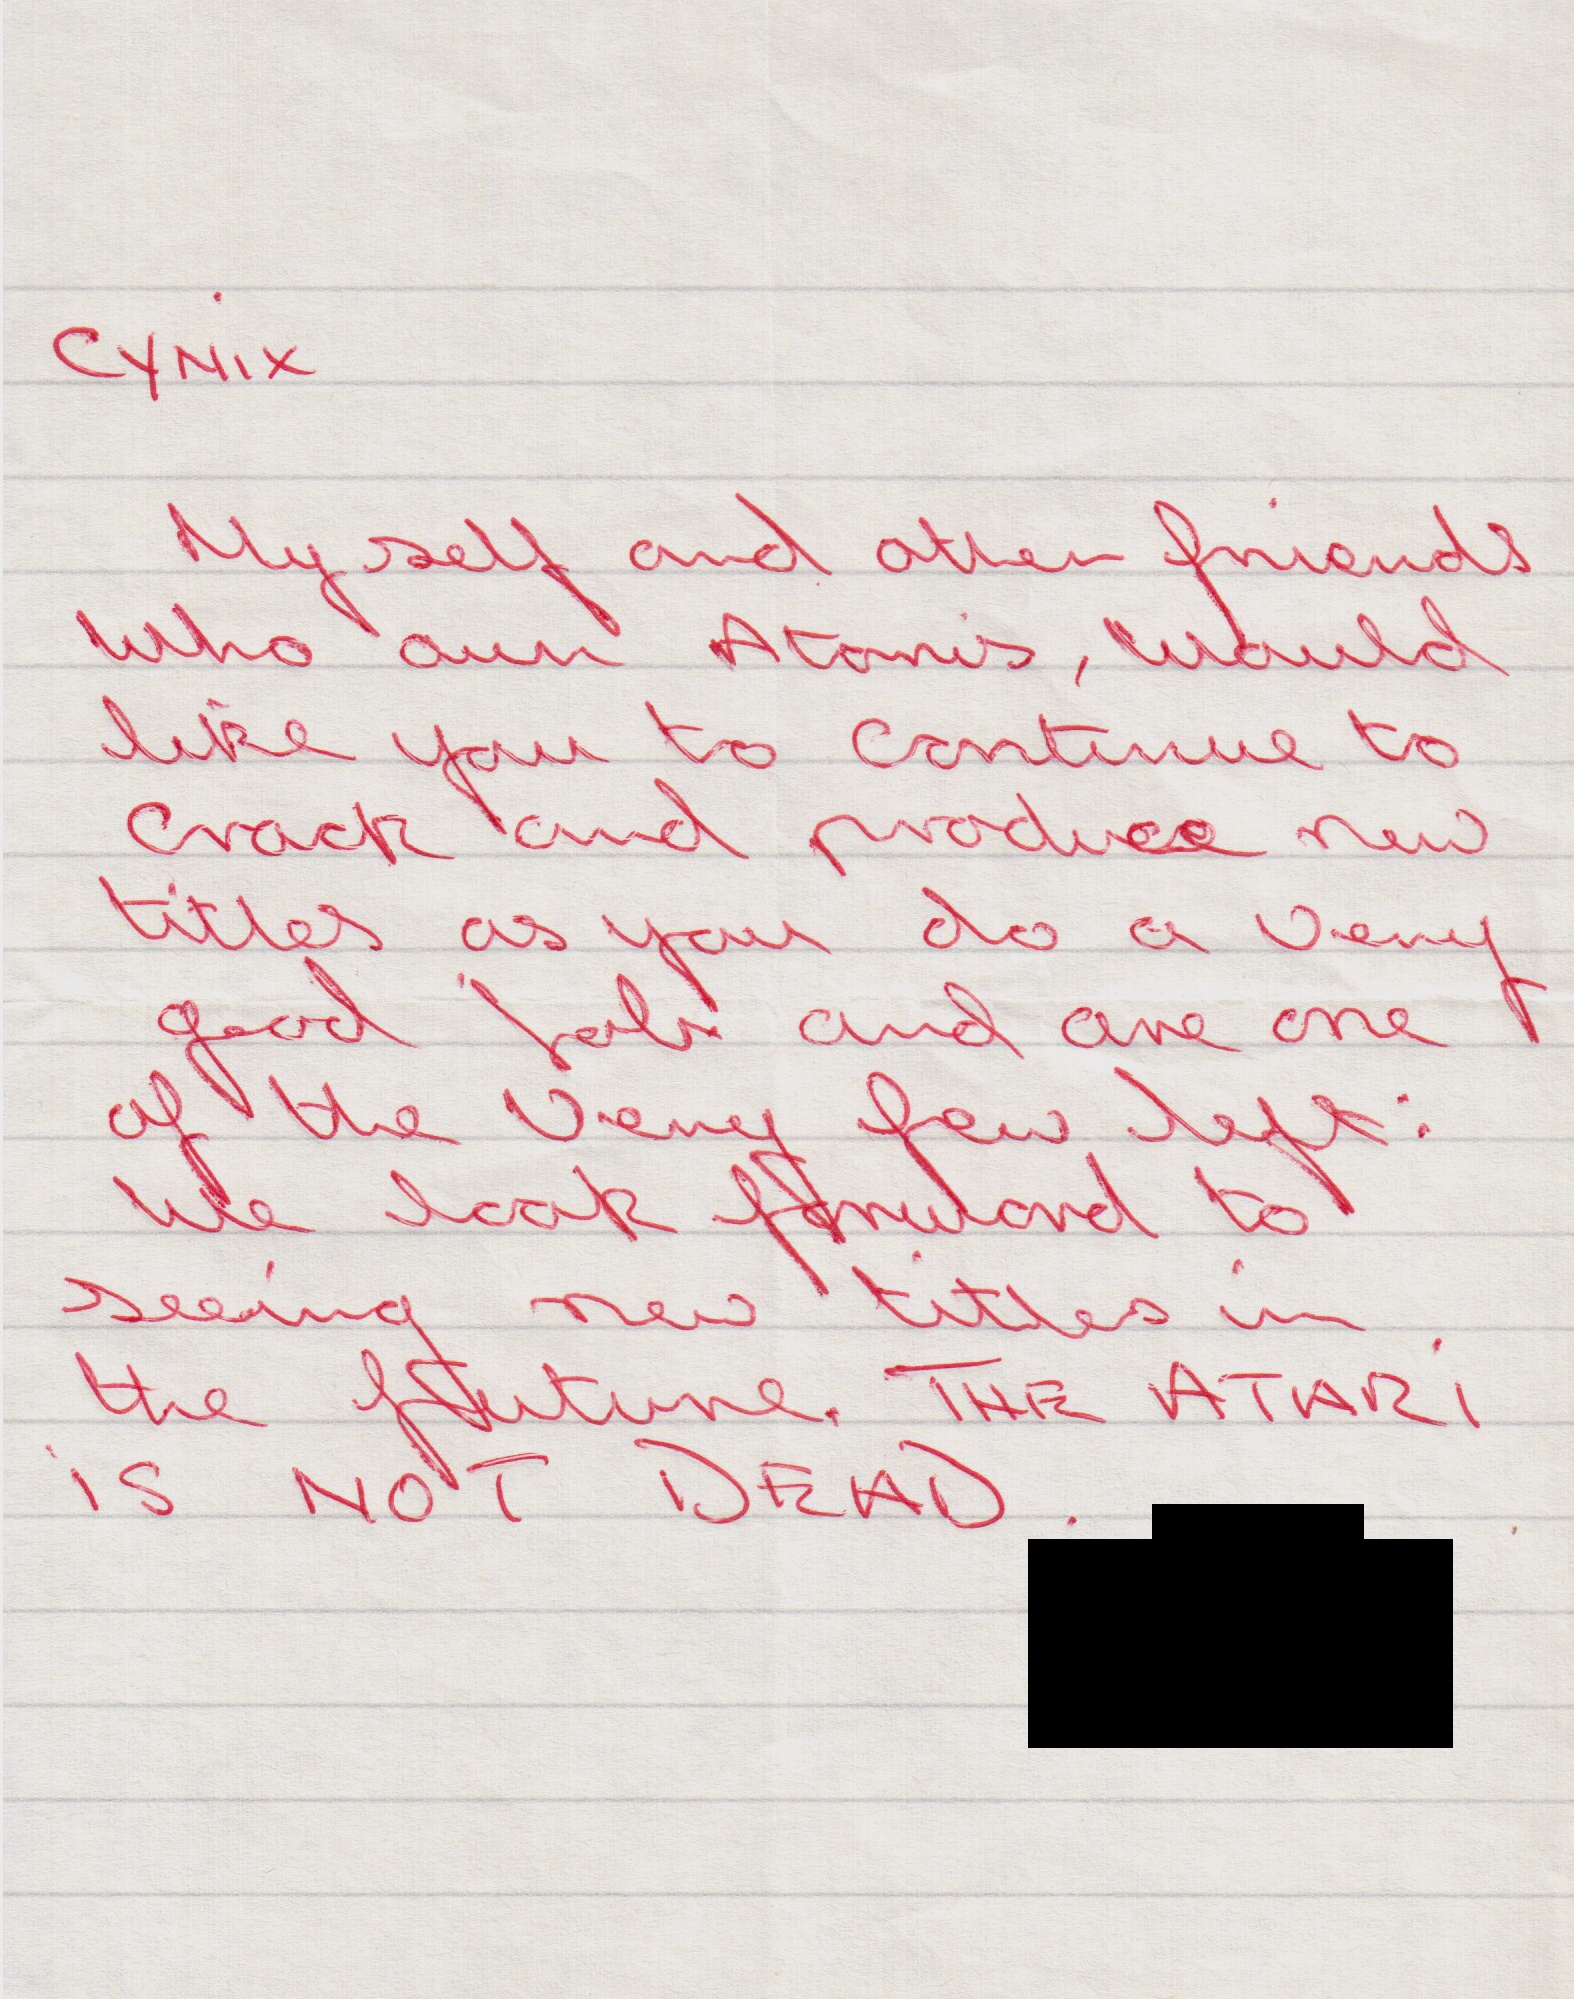 CYNIX
Myself and other friends
who own Ataris, would
like you to continue to
crack and produce new
titles as you do a very
good job and are one
of the very few left:
We look forward to
seeing new titles in
the future. THE ATARI
IS NOT DEAD.